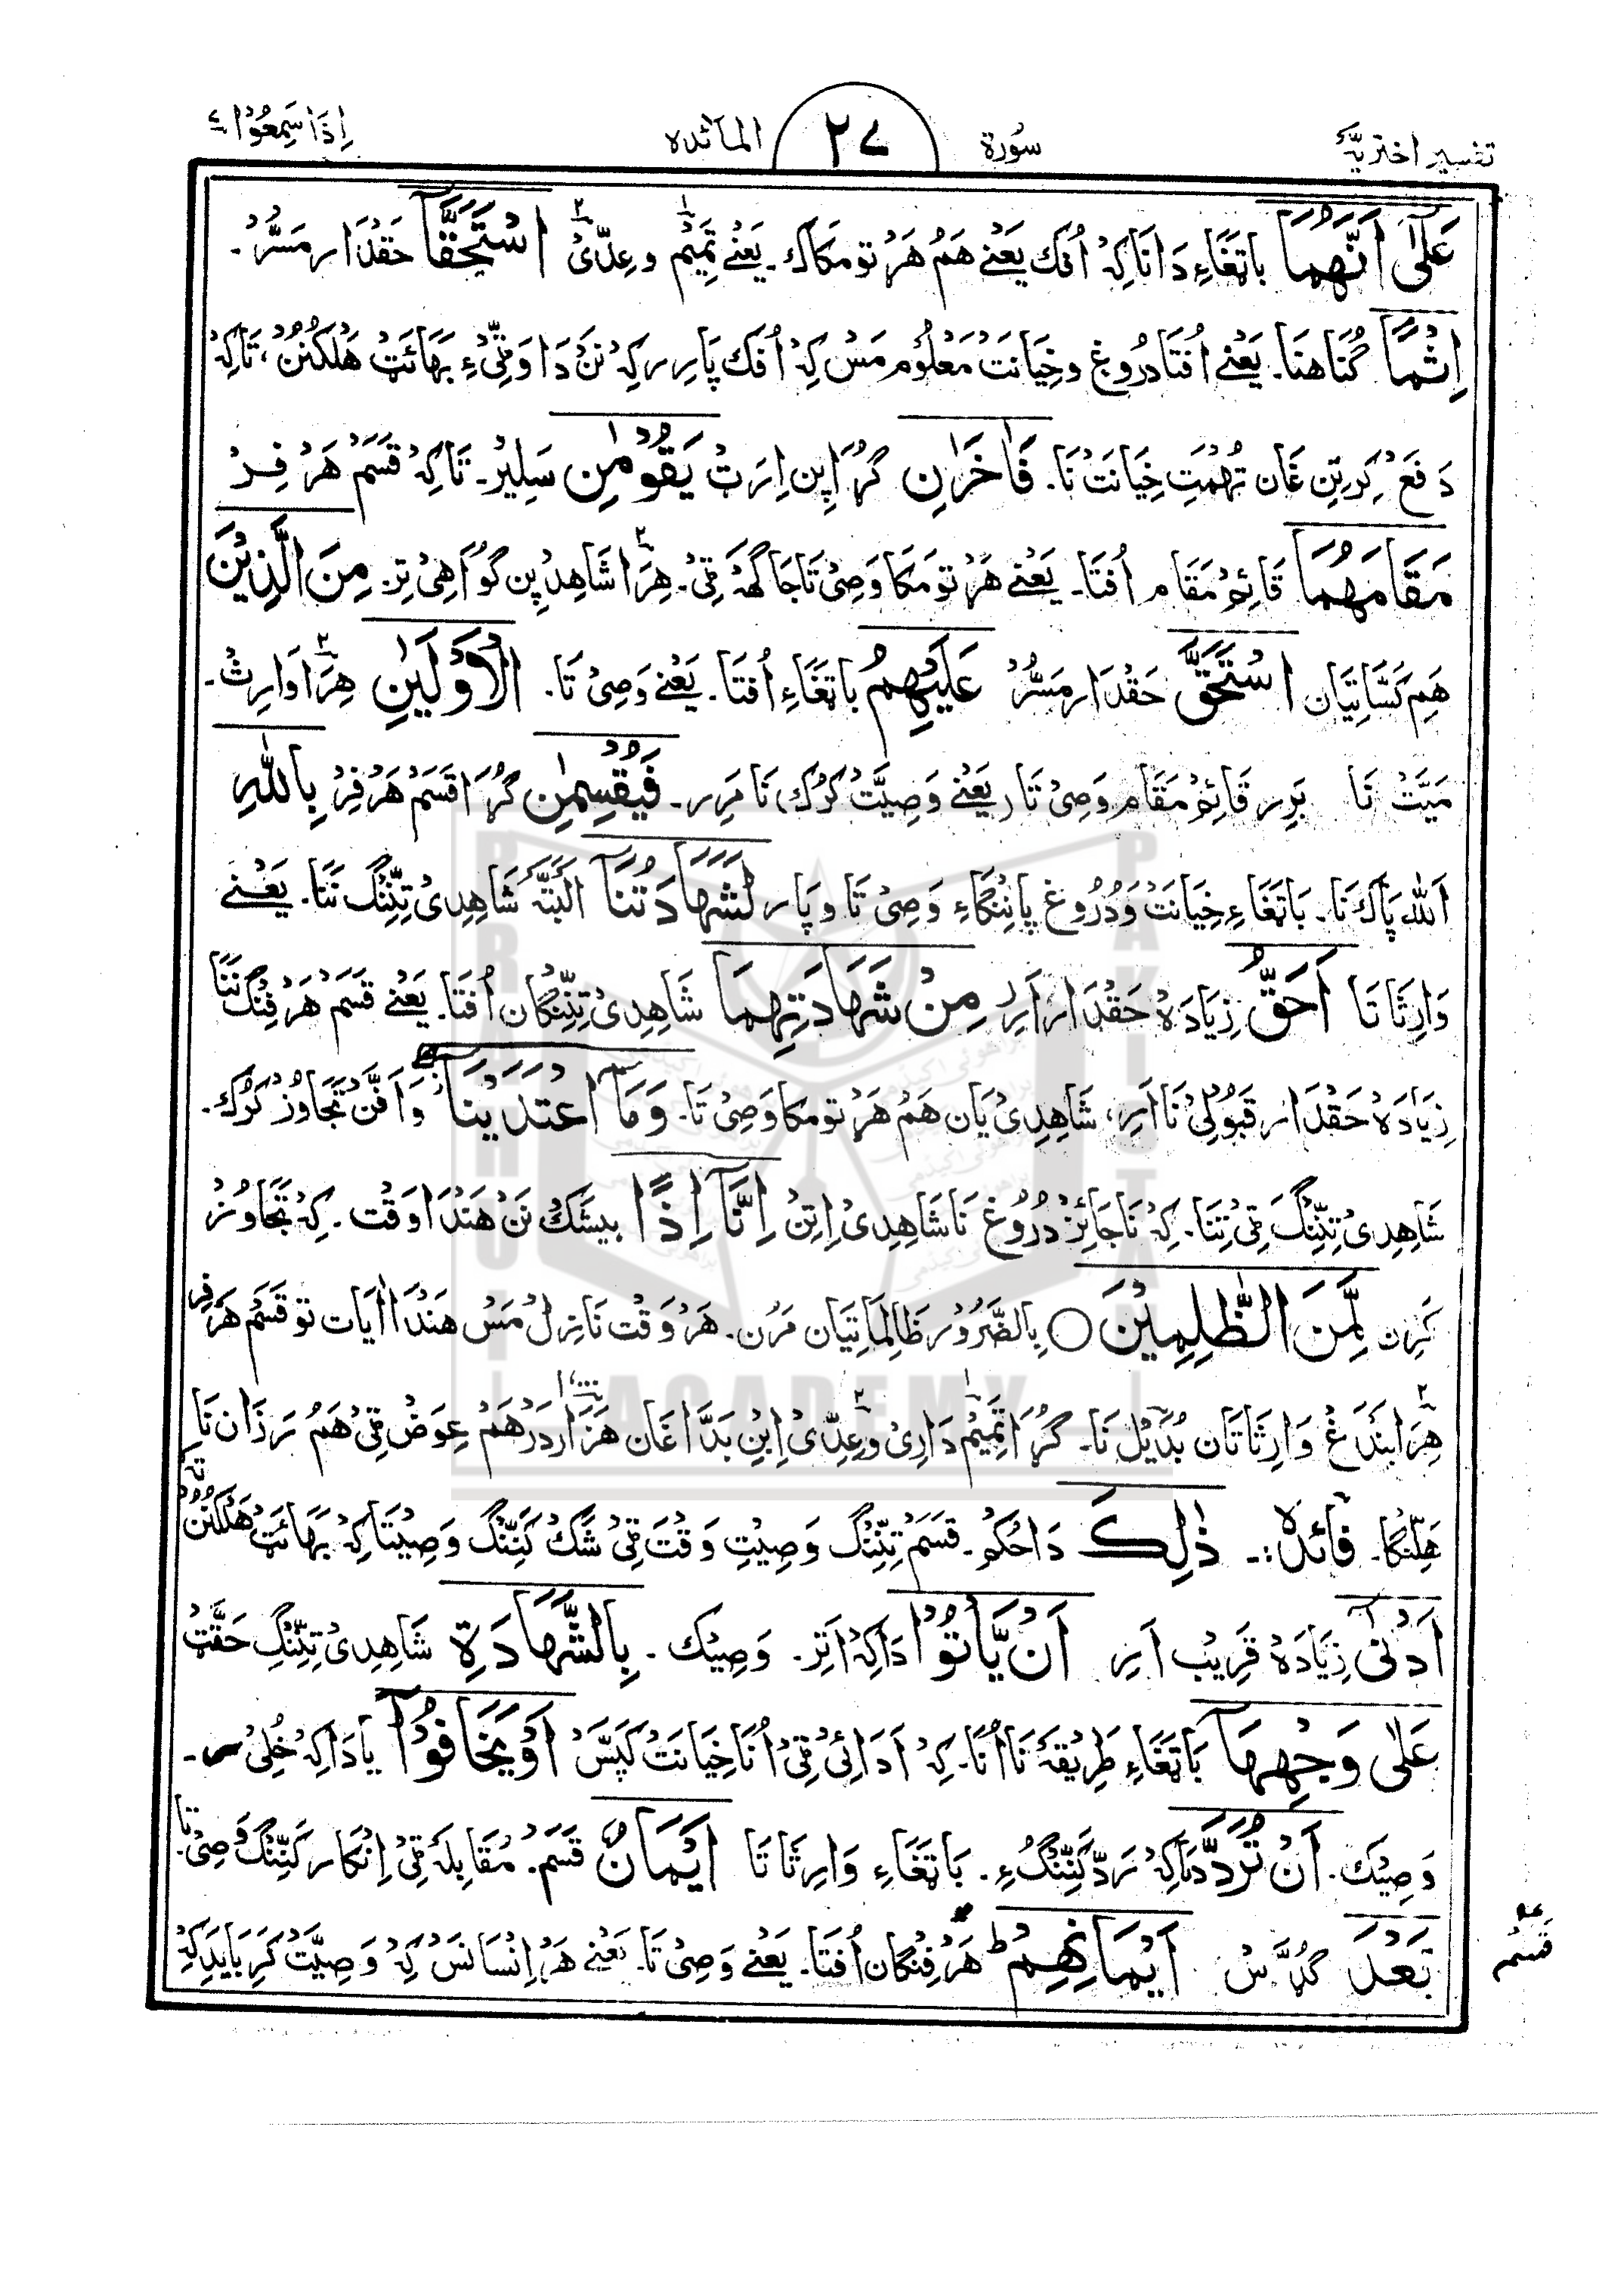 تفسیر اختریہ سُورة ٢٧ المآئدہ اِذَا سَمِعُوْا ٤
عَلٰۤى اَنَّهُمَا باتغَاءِ دَانَا کِہْ اُفک یَعْنےِ هَمُ هَرْتومَکاک۔ یَعْنےِ تَمِیْم وعِدِّیْ اسْتَحَقَّاۤ حَقْدَار مَسُّرْ۔
اِثْمًا گُنَاهنَا۔ یَعْنےِ اُفتَا دُرُوغ وخِیَانَتْ مَعْلُوم مَسْ کِہْ اُفک پَارِر کِہْ نَنْ دَا وَقْتِیْءِ بَهَائَٹْ هَلکُنُنْ، تَاکِہْ
دَفَعْ کِرتِن غَان تُهْمَتِ خِیَانَتْ نَا۔ فَاٰخَرٰنِ گُرَا پِن اِرَٹْ یَقُوْمٰنِ سَلِیْر۔ تَاکِہْ قَسَمْ هَرْ فِرْ
مَقَامَهُمَا قَائِمْ مَقَام اُفتَا۔ یَعْنےِ هَرْتومَکا وَصِیْ تَا جَاگَهْ ٹِیْ۔ هِرَا شَاهِدْ پِن گُواهِیْ تِر۔ مِنَ الَّذِیْنَ
هَمِ کَسَّاتِیَان اسْتَحَقَّ حَقْدَار مَسُّرْ عَلَیْهِمُ باتغَاءِ اُفتَا۔ یَعْنےِ وَصِیْ تَا۔ الْاَوْلَیٰنِ هِرَا وَارِثْ۔
مَیَّتْ نَا بَرِر قَائِمْ مَقَام وَصِیْ تَا (یَعْنےِ وَصِیَّتْ کَرُک) نَا مَرِر۔ فَیُقْسِمٰنِ گُرَا قَسَمْ هَرْفِرْ بِاللّٰهِ
اَللّٰه پَاک نَا۔ بَاتغَاءِ خِیَانَتْ وَدُرُوغ پاننگاءِ وَصِیْ تَا وپَار لَشَهَادَتُنَاۤ اَلبَتَّہ شَاهِدِیْ تِنِّنگ نَنَا۔ یَعْنےِ
وَارِثَاتَا اَحَقُّ زِیَادَهْ حَقْدَار اَرِر مِنْ شَهَادَتِهِمَا شَاهِدِیْ تِنِّنگان اُفتَا۔ یَعْنےِ قَسَمْ هَرْفِنگ نَنَا
زِیَادَهْ حَقْدَار قَبُولِیْ نَا اَرِ، شَاهِدِیْ یَان هَمُ هَرْتومَکا وَصِیْ تَا۔ وَمَا اعْتَدَیْنَاۤ وَاَفَّنْ تَجَاوُزْ کَرُک۔
شَاهِدِیْ تِنِّنگ ٹِیْ تِنَا۔ کِہْ نَاجَائِز دُرُوغ نَا شَاهِدِیْ اِتِنْ اِنَّاۤ اِذًا بیشَکْ نَنْ هَنْدَا وَقْت۔ کِہْ تَجَاوُزْ
کَرِن لَّمِنَ الظّٰلِمِیْنَ ○ بِالضَّرُور ظَالِمَاتِیَان مَرُن۔ هَرْ وَقْت نَازِلْ مَسْ هَنْدَا اٰیَات تو قَسَمْ هَرْفِر
هِرَا بَندَغْ وَارِثَاتَان بُدَیْل نَا۔ گُرَا تَمِیْم دَارِیْ وعِدِّیْ اِبْنِ بَدَّا غَان هَزَار ١٠٠٠ دَرْهَمْ عِوَضْ ٹِیْ هَمُ رَذَان نَا
هَلِنگا۔ فَائِدَہ:۔ ذٰلِكَ دَاحُکْم۔ قَسَمْ تِنِّنگ وَصِیْتِ وَقْتَ ٹِیْ شَکْ کَنِّنگ وَصِیْتَا کِہْ بَهَائَٹْ هَلکُنُنْ
اَدْنٰۤى زِیَادَهْ قَرِیْب اَرِ اَنْ یَّاْتُوْا دَاکِہْ اَتِر۔ وَصِیْک۔ بِالشَّهَادَةِ شَاهِدِیْ تِنِّنگِ حَقَّٹْ
عَلٰى وَجْهِهَاۤ بَاتغَاءِ طَرِیْقَہْ نَا اُنَا۔ کِہْ اَدَائِیْ ٹِیْ اُنَا خِیَانَتْ کَپَسْ اَوْ یَخَافُوْۤا یا دَاکِہْ خُلِیْر۔
وَصِیْک۔ اَنْ تُرَدَّ دَاکِہْ رَدّ کَنِّنگءِ۔ بَاتغَاءِ وَارِثَاتَا اَیْمَانٌ قَسَمْ۔ مُقَابِلَہْ ٹِیْ اِنْکَار کَنِّنگ وَصِیْ تَا۔
بَعْدَ گُڈَّسْ اَیْمَانِهِمْ ؕ هَرْفِنگان اُفتَا۔ یَعْنےِ وَصِیْ تَا۔ یَعْنےِ هَرْ اِنْسَانَسْ کِہْ وَصِیَّتْ کَرِ بَایَدِ کِہْ
قَسَمْ
PAKISTAN
BRAHUI
ACADEMY